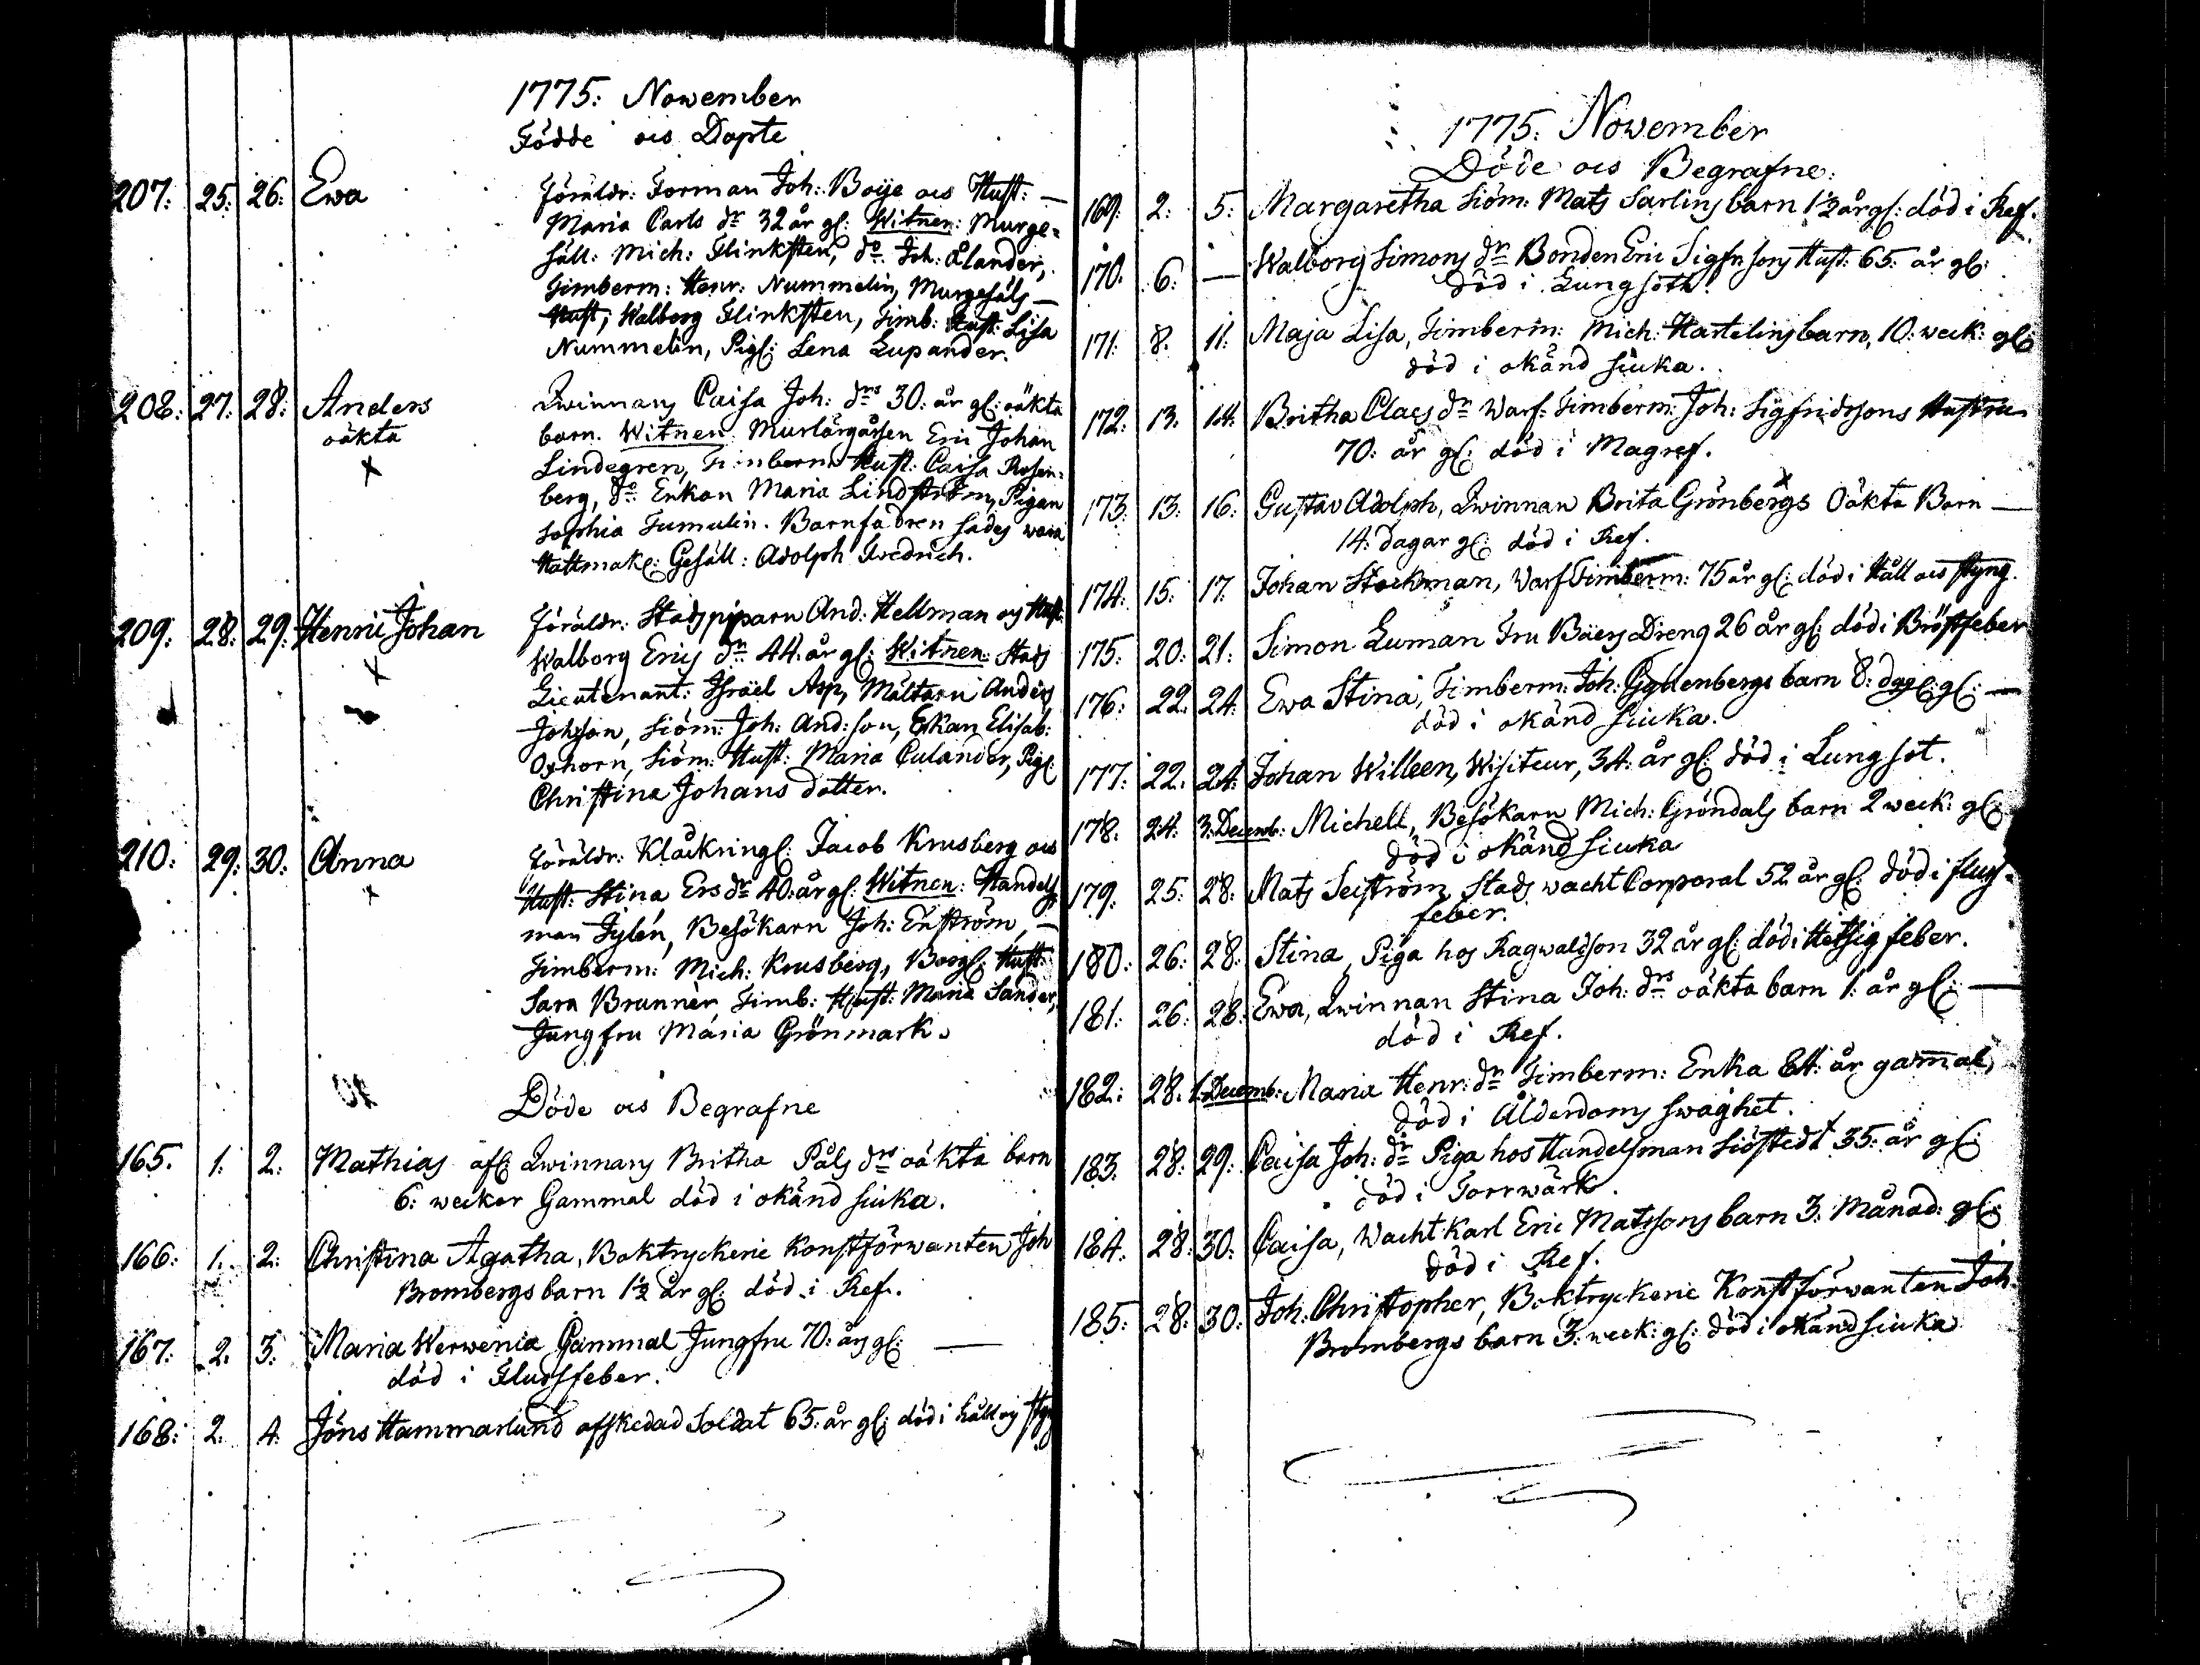 1775: November
Födde ocs Döpte
207: 25: 26: Ewa Föräldr: Forman Joh: Boije ocs Hust: —
Maria Carls dr 32 år gl: Witnen: Murge-
säll: Mich: Flinksten, do Joh: Ålander,
Timberm: Henr: Nummelin, Murgesäls —
Hust; Walborg Flinksten, Timb: Hust: Lisa
Nummelin, Pig: Lena Lupander.
208: 27: 28: Anders Qwinnans Caisa Joh: drs 30: år gl: oäkta
oäkta barn. Witnen: Murlärgåssen Eric Johan
x Lindegren, Timberm: Hust: Caisa Rosen-
berg, do Enkan Maria Lindström, Pigan
Sophia Tumulin. Barnfadren sades wara
Hattmak: Gesäll: Adolph Fredrich.
209: 28: 29: Henric Johan Föräldr: Stadspiparn And: Hellman og Hust:
x Walborg Erics dr 44: år gl: Witnen: Stads
Lieutenant: Israël Asp, Mältarn Anders
Johsson, Siöm: Joh: And:son, Enkan Elisab:
Oxhorn, Siöm: Hust: Maria Culander, Pig:
Christina Johans dotter.
210: 29: 30: Anna Föräldr: Klåckring: Jacob Krusberg ocs
x Hust: Stina Ers dr 40: år gl: Witnen: Handels
man Tylén, Besökarn Joh: Enström, —
Timberm: Mich: Krusberg, Borg: Hust:
Sara Brunnèr, Timb: Hust: Maria Sander,
Jungfru Maria Grönmark.
Döde ocs Begrafne
165. 1: 2: Mathias afl: Qwinnans Britha Påls drs oäkta barn
6: weckor Gammal död i okänd siuka.
166: 1. 2: Christina Agatha, Boktryckerie Konstförwanten Joh
Brombergs barn 1½ år gl: död i Ref.
167: 2. 3: Maria Werwenia Gammal Jungfru 70: års gl: —
död i Flussfeber.
168: 2: 4: Jöns Hammarlund afskedad Soldat 65: år gl: död i håll og styng
1775: November
Döde ocs Begrafne:
169: 2: 5: Margaretha Siöm: Mats Sarlins barn 1½ år gl: död i Ref.
170. 6: — Walborg Simons dr Bonden Eric Sigfrsons Hust: 65: år gl:
död i Lungsoth.
171: 8. 11: Maja Lisa, Timberm: Mich: Hartelins barn, 10: weck: gl:
död i okänd siuka.
172: 13. 14: Britha Claes dr Warf: Timberm: Joh: Sigfridssons Hustru
70: år gl: död i Magref.
173: 13: 16: Gustav Adolph, Qwinnan Brita Grönbergs Oäkta Barn —
14: dagar gl: död i Ref.
174: 15: 17. Johan Stockman, Warf Timberm: 75 år gl: död i Håll ocs styng.
175: 20: 21: Simon Luman Fru Bäcks Dreng 26 år gl: död i Bröstfeber
176: 22. 24: Ewa Stina, Timberm: Joh: Gyllenbergs barn 8: dag: gl: —
död i okänd siuka.
177: 22. 24: Johan Willeen, Wisiteur, 34: år gl: död i Lungsot.
178: 24: 3: Decemb: Michell, Besökarn Mich: Gröndals barn 2 weck: gl:
död i okänd siuka
179. 25: 28: Mats Seiström, Stads wacht Corporal 52 år gl: död i fluss-
feber.
180: 26: 28: Stina, Piga hos Ragwaldson 32 år gl: död i Hetsig feber.
181: 26: 28: Ewa, Qwinnan Stina Joh: drs oäkta barn 1: år gl: —
död i Ref.
182: 28. 1: Decemb: Maria Henr: dr Timberm: Enka 84: år gamal,
död i Ålderdoms swaghet.
183: 28: 29: Caisa Joh: dr Piga hos Handelsman Siöstedt 35: år gl:
död i Torrwärk.
184: 28: 30: Caisa, Wacht karl Eric Matssons barn 3: Månad: gl:
död i Ref.
185: 28: 30: Joh: Christopher, Boktryckerie Konstförwanten Joh:
Brombergs barn 3: weck: gl: död i okänd siuka